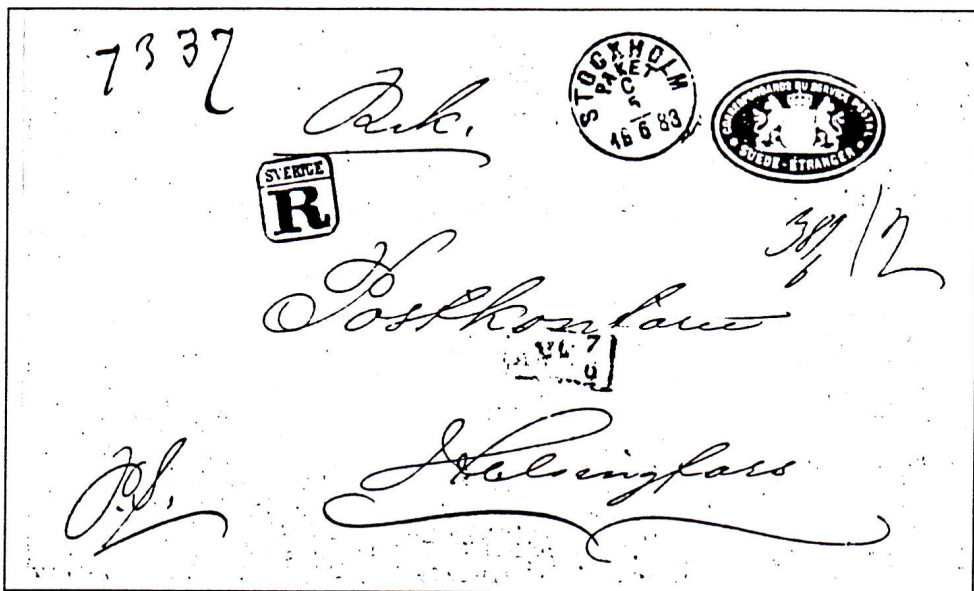 7337
Rek.
STOCKHOLM
PAKET
C
5
16 6 83
CORRESPONDANCE DU SERVICE POSTAL
SUÈDE-ÉTRANGER
SVERIGE
R
12
Postkontoret
7
Helsingfors
P.S.